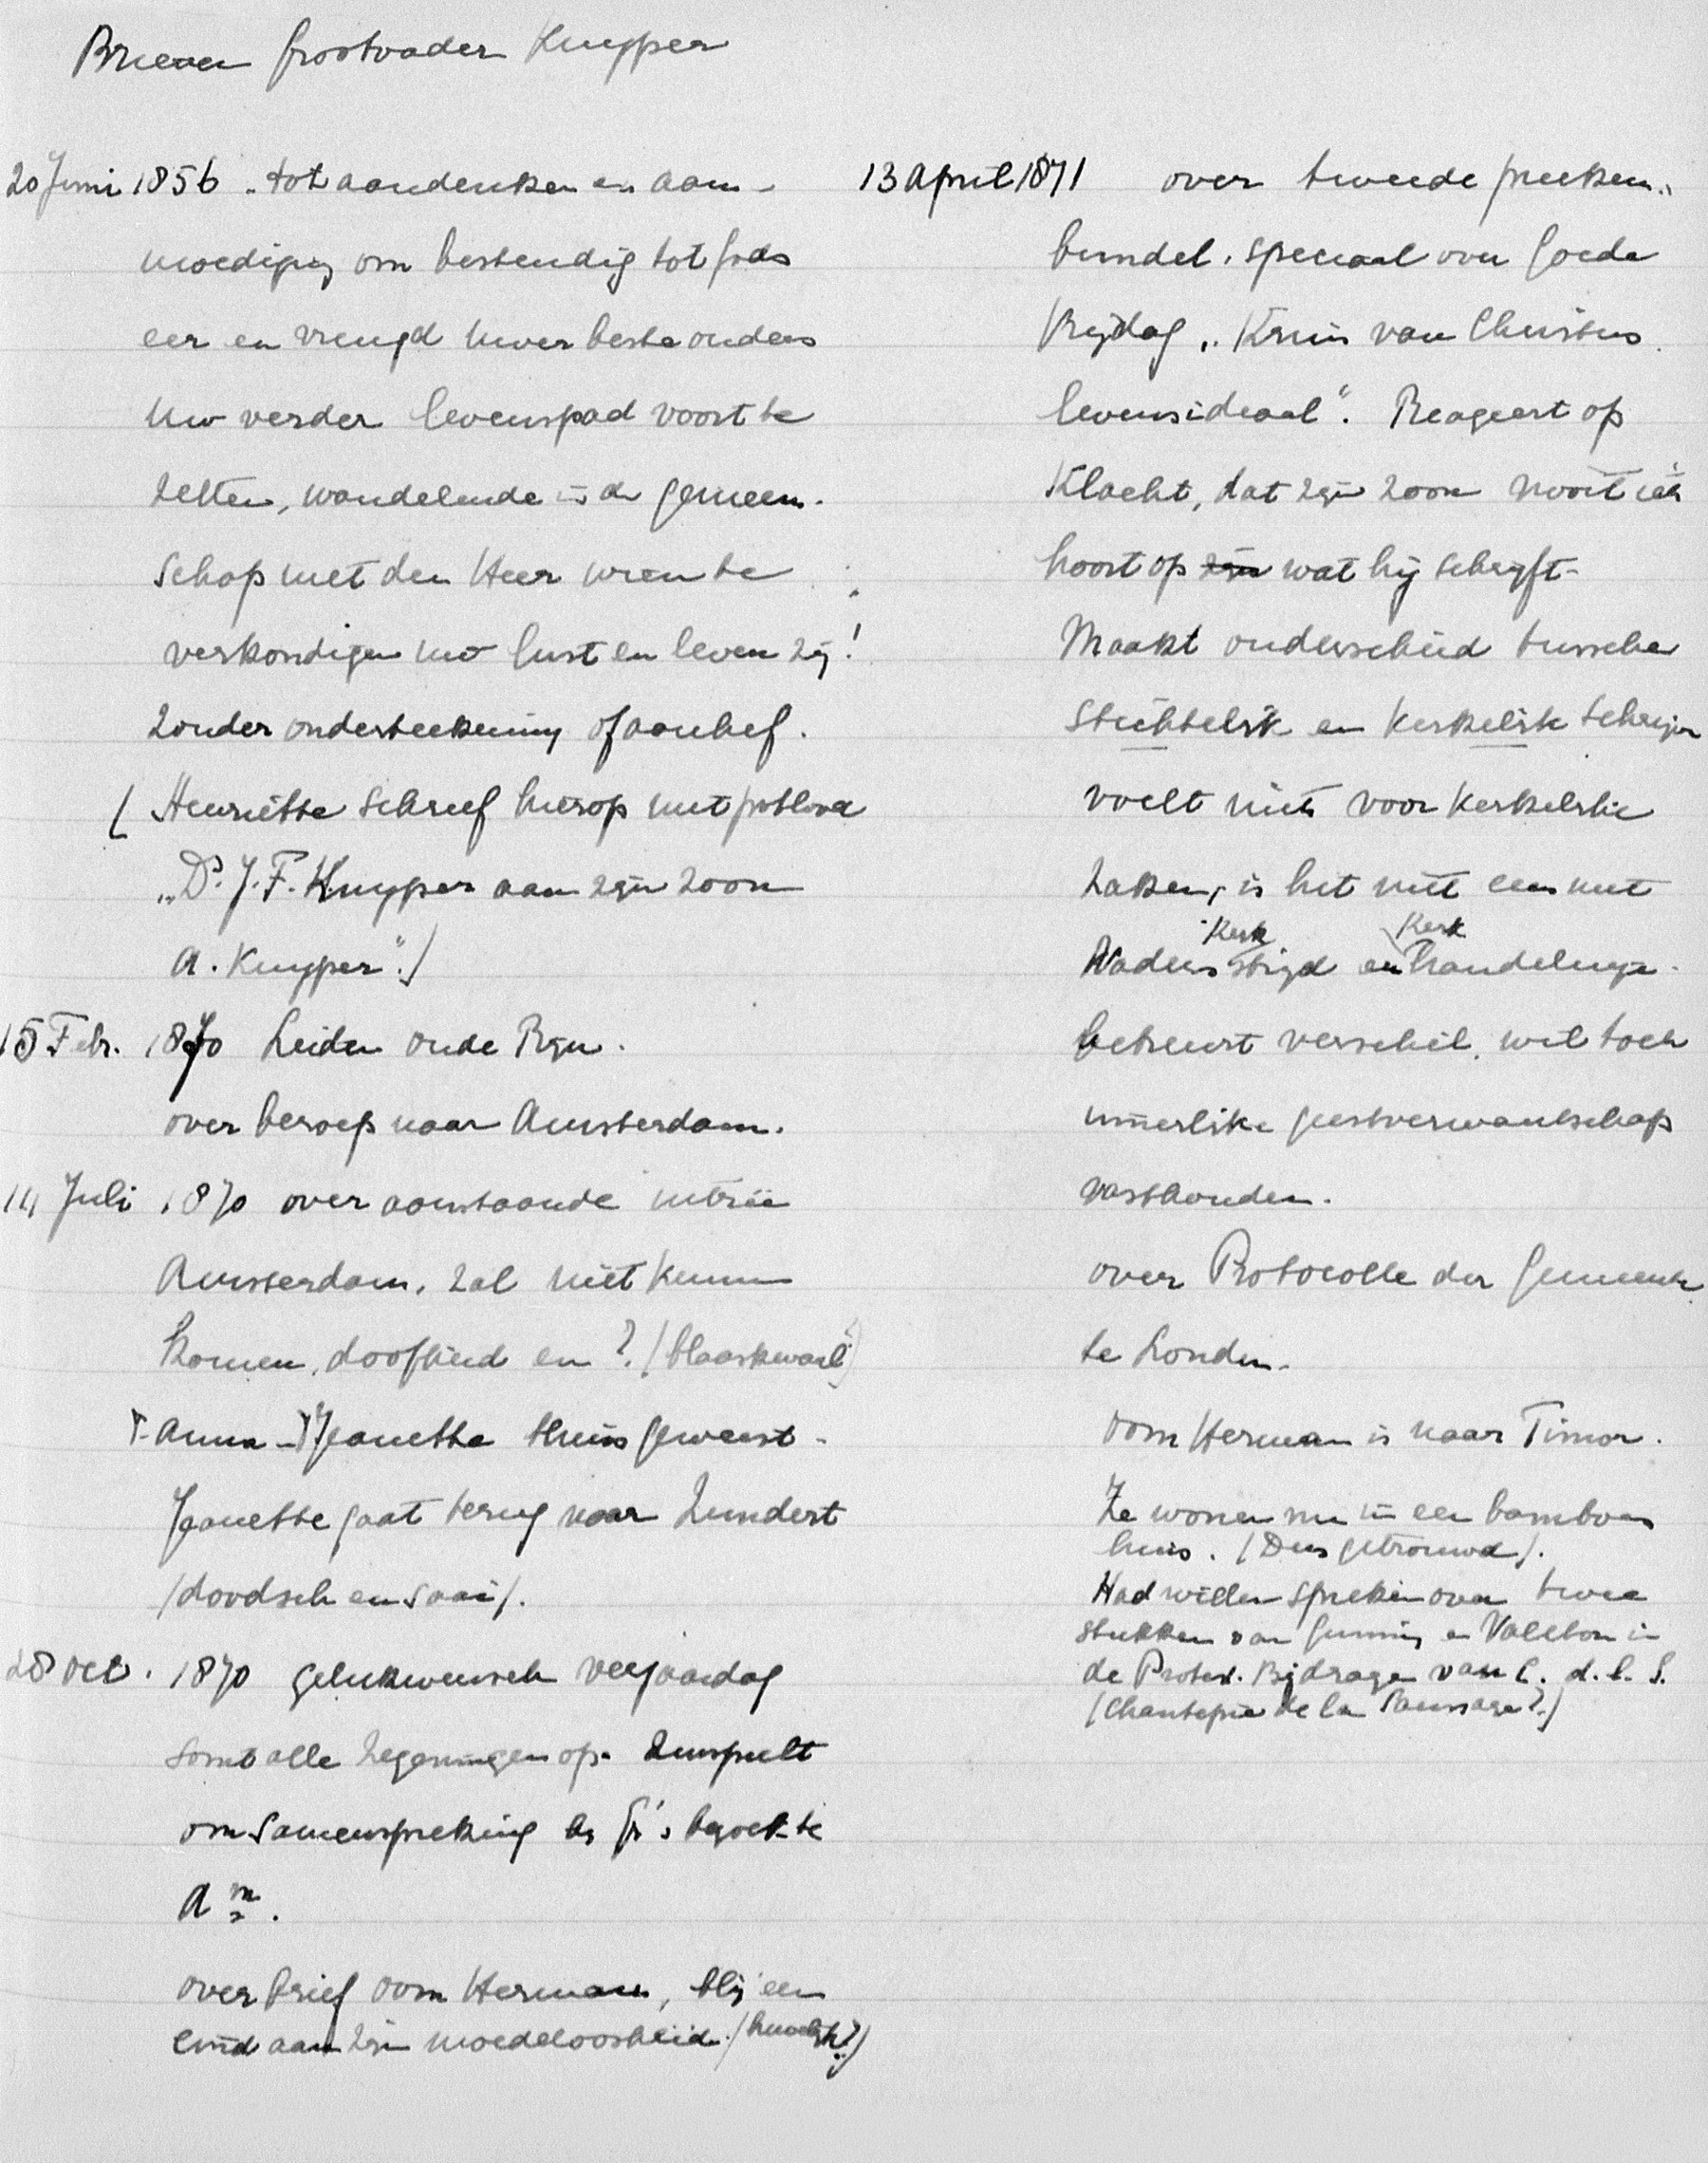 Brieven Grootvader Kuyper
20 Juni 1856 „tot aandenken en aan-
moediging om bestendig tot Gods
eer en vreugd uwer beste ouders
uw verder levenspad voort te
zetten, wandelende in de gemeen-
schap met den Heer wien te
verkondigen uw lust en leven zij!
Zonder onderteekening of aanhef.
(Henriëtte schreef hierop met potlood
„Ds. J.F. Kuyper aan zijn zoon
A. Kuyper".)
15 Febr. 1870 Leiden Oude Rijn.
over beroep naar Amsterdam.
14 Juli 1870 over aanstaande intrêe
Amsterdam, zal niet kunnen
komen, doofheid en ? (blaaskwaal?)
T. Anna - T. Jeanette thuis geweest.
Jeanette gaat terug naar Zundert
(doodsch en saai).
28 Oct. 1870 gelukwensch verjaardag
somt alle zegeningen op. Zinspeelt
om samenspreking bij Gr's bezoek te
Am.
over brief oom Herman, blij een
eind aan zijn moedeloosheid. (huwelijk?)
13 April 1871 over tweede preeken-
bundel, speciaal over Goede
Vrijdag „Kruis van Christus
levensideaal". Reageert op
Klacht, dat zijn zoon nooit iets
hoort op zijn wat hij schrijft.
Maakt onderscheid tusschen
stichtelik en kerkelik schrijven
voelt niets voor kerkelike
zaken, is het niet eens met
Kerk Kerk
Vaders strijd en handelingen.
betreurt verschil, wil toch
innerlike geestverwantschap
vasthouden.
over Protocolle der Gemeente
te Londen.
Oom Herman is naar Timor.
Ze wonen nu in een bamboes
huis. (Dus getrouwd).
Had willen spreken over twee
stukken van Gunning en Valeton in
de Protest. Bijdragen van C. d. l. S.
(Chantepie de la Saussaye?)